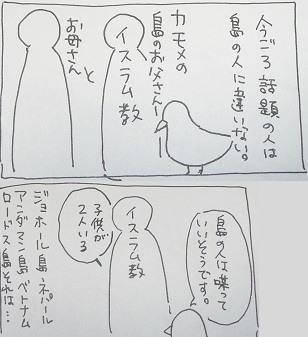 今ごろ話題の人は
島の人に違いない。
カモメの
島のお父さんー
イスラム教
と
お母さん
島の人は喋って
いいそうです。
イスラム教
子供が
2人いる
ジョホール島・ネパール
アンダマン島 ベトナム
ロードス島それは…